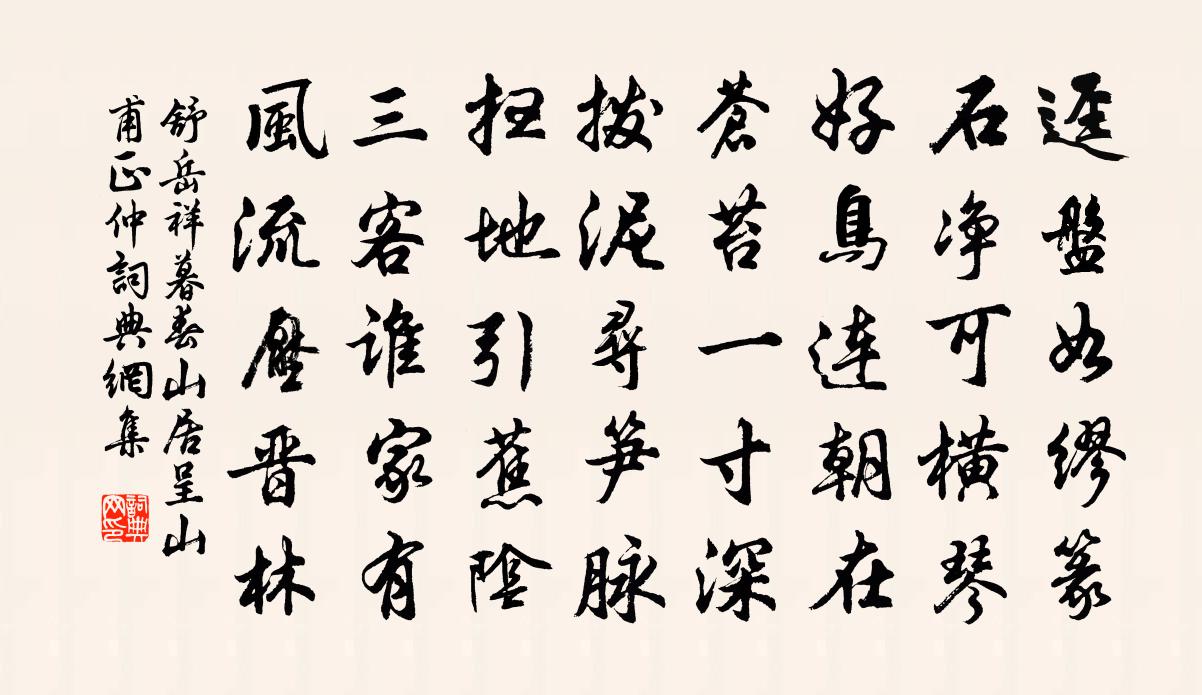 逕盤如繆篆
石净可橫琴
好鳥連朝在
蒼苔一寸深
撥泥尋笋脉
扫地引蕉陰
三客誰家有
風流壓晋林
舒岳祥暮春山居呈山
甫正仲詞典網集
詞典
网印